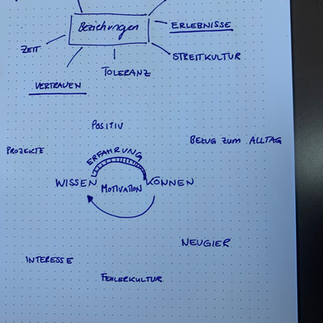 Beziehungen
ERLEBNISSE
ZEIT
STREITKULTUR
TOLERANZ
VERTRAUEN
POSITIV
BEZUG ZUM ALLTAG
PROJEKTE
ERFAHRUNG
WISSEN
KÖNNEN
MOTIVATION
NEUGIER
INTERESSE
FEHLERKULTUR